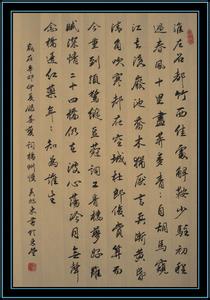 淮左名都竹西佳處解鞍少駐初程
過春風十里盡薺麥青々自胡馬窺
江去後廢池喬木猶厭言兵漸黃昏
清角吹寒都在空城杜郎俊賞算而
今重到須驚縱豆蔻詞工青樓夢好難
賦深情二十四橋仍在波心蕩冷月無聲
念橋邊紅藥年々知為誰生
歲在辛卯仲夏錄姜夔詞揚州慢